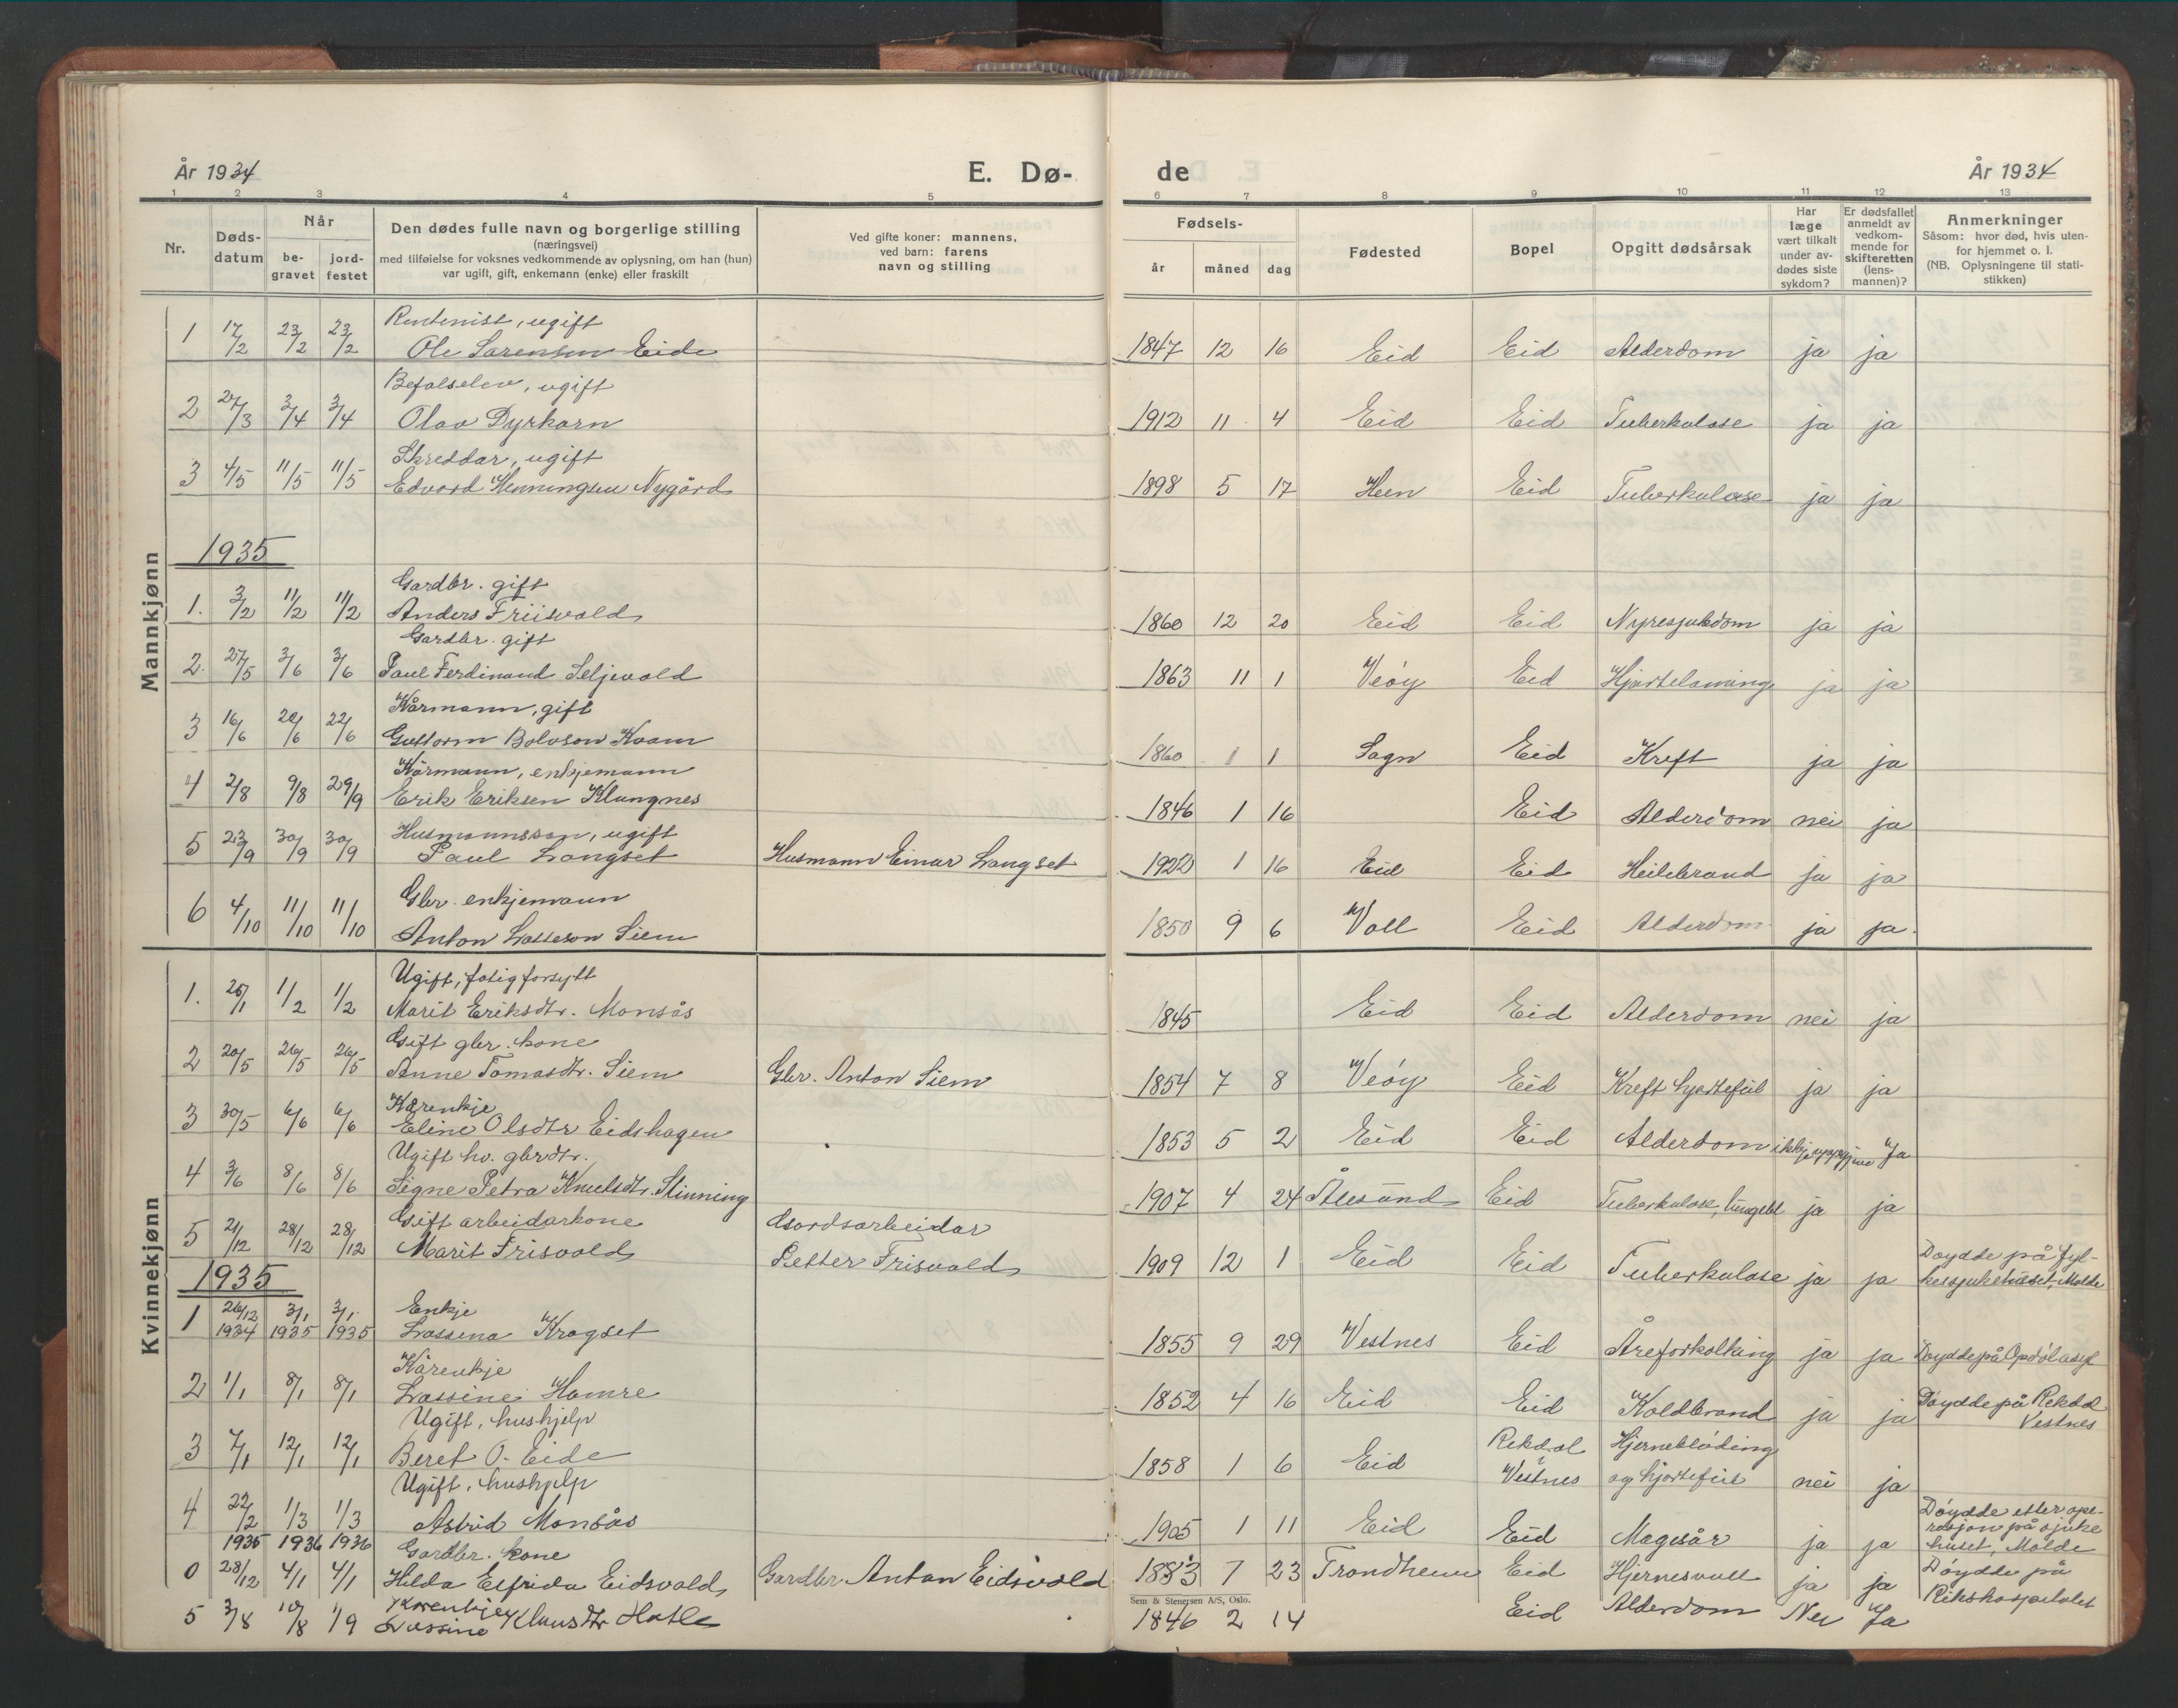 År 1934 E. Dø- de År 1934
1 2 3 4 5 6 7 8 9 10 11 12 13
Nr. Døds-datum Når be-gravet jord-festet Den dødes fulle navn og borgerlige stilling (næringsvei) med tilføielse for voksnes vedkommende av oplysning, om han (hun) var ugift, gift, enkemann (enke) eller fraskilt Ved gifte koner: mannens, ved barn: farens navn og stilling Fødsels- år måned dag Fødested Bopel Opgitt dødsårsak Har læge vært tilkalt under av-dødes siste sykdom? Er dødsfallet anmeldt av vedkom-mende for skifteretten (lens-mannen)? Anmerkninger Såsom: hvor død, hvis uten-for hjemmet o. l. (NB. Oplysningene til stati-stikken)
Mannkjønn
Rentenist, ugift
1 17/2 23/2 23/2 Ole Sørensen Eide 1847 12 16 Eid Eid Alderdom ja ja
Befalselev, ugift
2 27/3 3/4 3/4 Olav Dyrkorn 1912 11 4 Eid Eid Tuberkulose ja ja
Skreddar, ugift
3 4/5 11/5 11/5 Edvard Henningsen Nygård 1898 5 17 Hen Eid Tuberkulose ja ja
1935
Gardbr. gift
1. 3/2 11/2 11/2 Anders Friisvold 1860 12 20 Eid Eid Nyresjukdom ja ja
Gardbr. gift
2. 27/5 3/6 3/6 Paul Ferdinand Seljevold 1863 11 1 Veøy Eid Hjartelaming ja ja
Kårmann, gift
3 16/6 22/6 Guttorm Kvam 1860 1 1 Sogn Eid Kreft ja ja
Kårmann, enkjemann
4 2/8 9/8 29/9 Erik Eriksen Klungnes 1846 1 16 Eid Alderdom nei ja
Husmannsson, ugift
5 23/9 30/9 30/9 Paul Langset Husmann Einar Langset 1922 1 16 Eid Eid Heilebrand ja ja
Gbr. enkjemann
6 4/10 11/10 11/10 Anton Lasseson Siem 1850 9 6 Voll Eid Alderdom ja ja.
Kvinnekjønn
Ugift, fatigforsytt
1. 1/2 1/2 Marit Eriksdtr. Monsås 1845 Eid Eid Alderdom nei ja
Gift gbr. kone
2 20/5 26/5 26/5 Anne Tomasdtr. Siem Gbr. Anton Siem 1854 7 8 Veøy Eid Kreft hjartefeil ja ja
Kårenkje
3 30/5 6/6 6/6 Eline Olsdtr Eidshagen 1853 5 2 Eid Eid Alderdom ikkje uppgjeve Ja
Ugift hv. gbrdtr.
4 3/6 8/6 8/6 Signe Petra Knutsdtr. Stinning 1907 4 24 Ålesund Eid Tuberkulose, ja ja
Gift arbeidarkone Gardsarbeidar
5 21/12 28/12 28/12 Marit Frisvold Petter Frisvold 1909 12 1 Eid Eid Tuberkulose ja ja Døydde på fyl-
kessjukehuset, Molde
1935
Enkje
1 26/12 1934 3/1 1935 3/1 1935 Lassena Kragset 1855 9 29 Vestnes Eid Åreforkalking ja ja Døydde på Opdøl asyl
Kårenkje
2 1/1 8/1 8/1 Lassine Hamre 1852 4 16 Eid Eid Koldbrand ja ja Døydde på Rekdal
Vestnes
Ugift, hushjelp
3 7/1 12/1 12/1 Beret O. Eide 1858 1 6 Eid Rekdal i Vestnes Hjernebløding og hjertefeil nei ja
Ugift, hushjelp
4 22/2 1/3 1/3 Astrid Monsås 1905 1 11 Eid Eid Magesår ja ja Døydde etter ope-
rasjon på sjuke
huset, Molde
1935 1936 1936 Gardbr. kone
0 28/12 4/1 4/1 Hilda Elfrida Eidsvold Gardbr. Anton Eidsvold 1883 7 23 Trondheim Eid Hjernesvull ja ja Døydde på
Rikshospitalet
Sem & Stenersen A/S, Oslo.
Kårenkje
5 3/8 10/8 1/9 Lassine Klausdtr Hatle 1846 2 14 Eid Alderdom Nei Ja